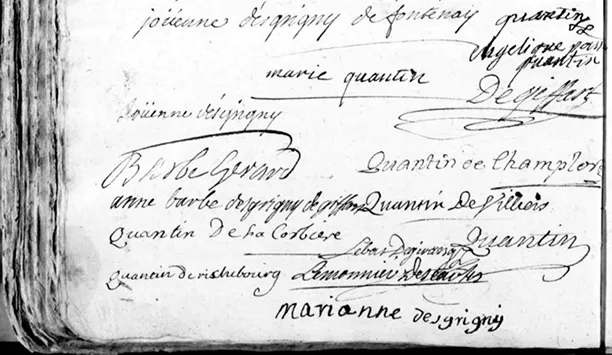 joüenne desgrigny de fontenay quantin
Angelique
quantin
marie quantin
De giffart
Joüenne désgrigny
Barbe Gerard
Quantin de Champlost
anne barbe desgrigny de giffart Quantin De Villiers
Quantin De La Corbiere
Quantin
Quantin de richebourg Lemonnier
marianne desgrigny